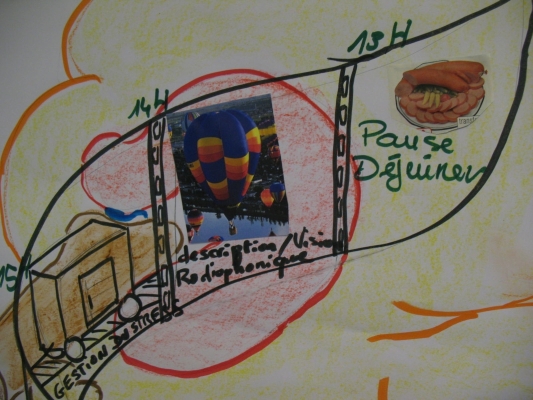 13H
Pause
Déjeuner
14H
description/Vision
Radiophonique
15
GESTION DU STRESS